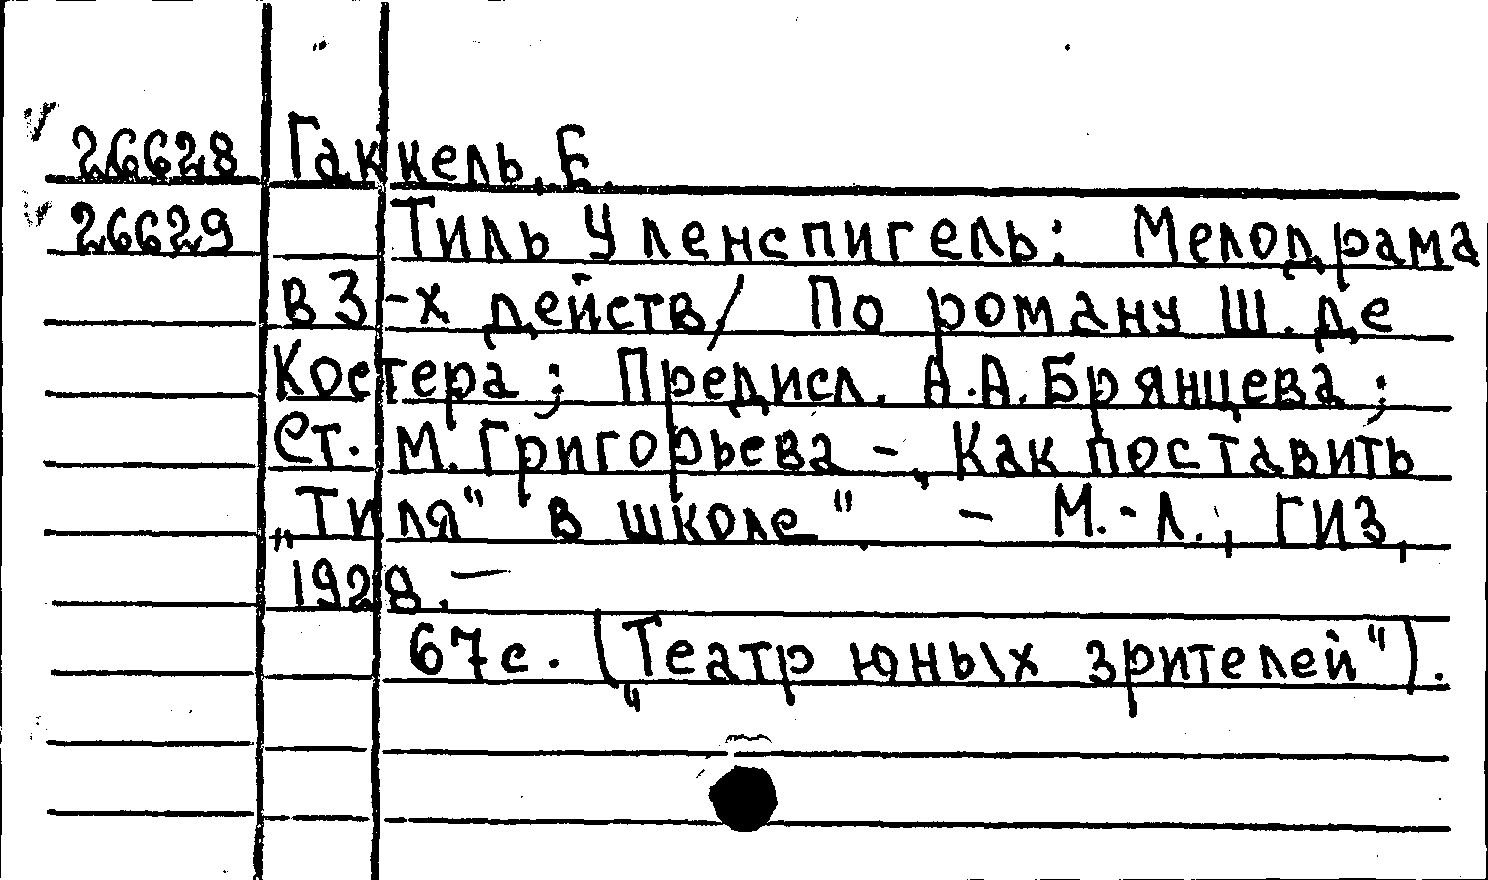 26628 Гаккель, Е.
26629 Тиль Уленспигель: Мелодрама
в 3-х действ/ По роману Ш. де
Костера; Предисл. А.А. Брянцева;
Ст. М. Григорьева - „Как поставить
„Тиля" в школе" - М.-Л., ГИЗ,
1928. -
67с. („Театр юных зрителей").